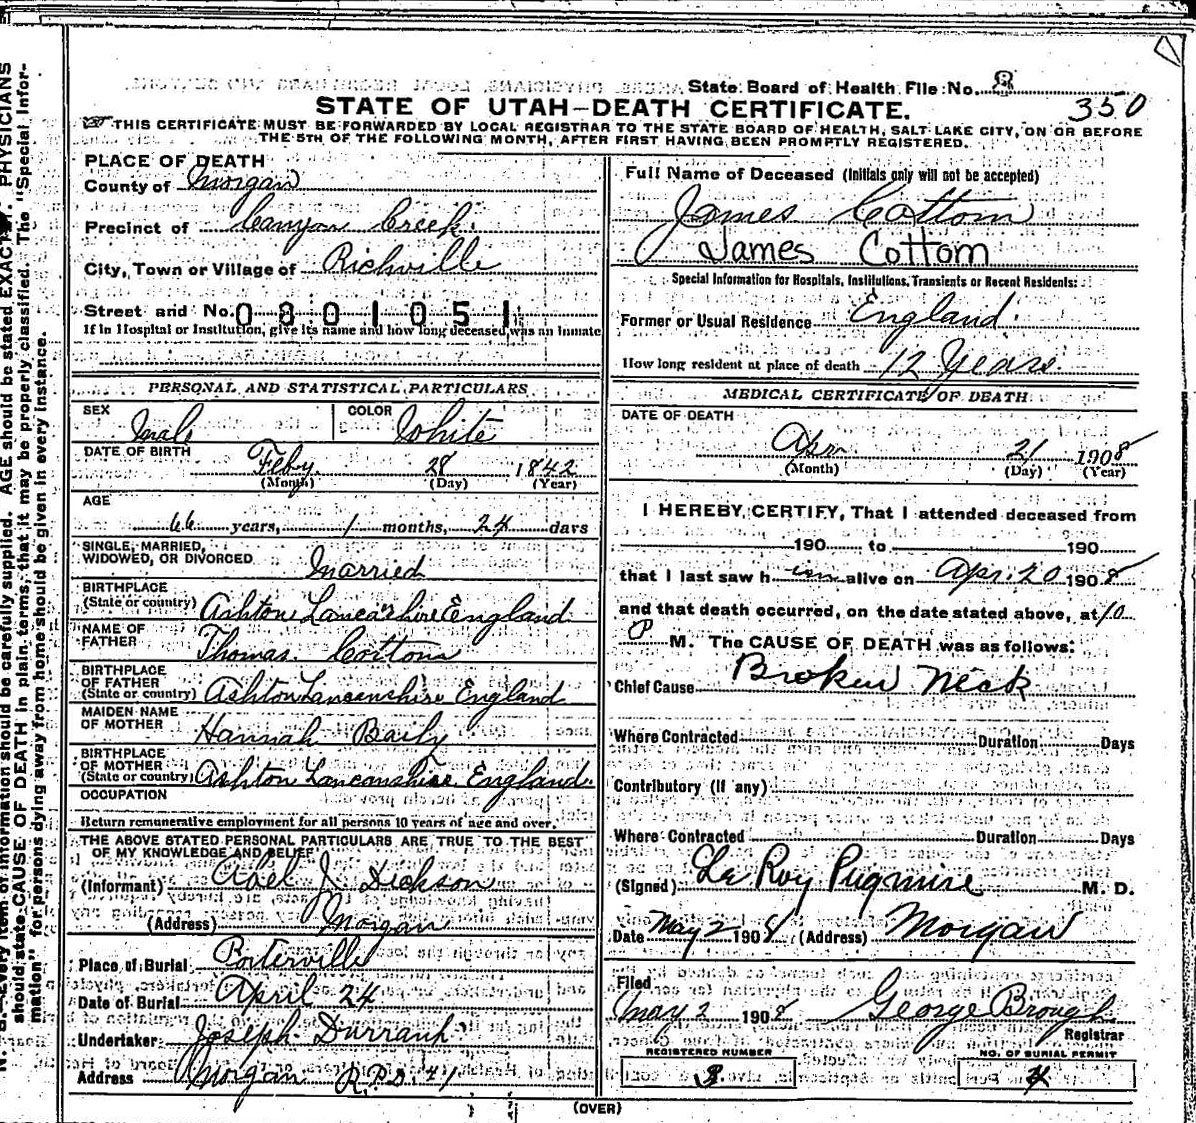 State Board of Health File No. 8
350
STATE OF UTAH—DEATH CERTIFICATE.
THIS CERTIFICATE MUST BE FORWARDED BY LOCAL REGISTRAR TO THE STATE BOARD OF HEALTH, SALT LAKE CITY, ON OR BEFORE
THE 5TH OF THE FOLLOWING MONTH, AFTER FIRST HAVING BEEN PROMPTLY REGISTERED.
PLACE OF DEATH
County of Morgan
Precinct of Canyon Creek.
City, Town or Village of Richville
Street and No. 0801051
If in Hospital or Institution, give its name and how long deceased was an inmate
PERSONAL AND STATISTICAL PARTICULARS
SEX Male COLOR White
DATE OF BIRTH
Feby 28 1842
(Month) (Day) (Year)
AGE
66 years, 1 months, 24 days
SINGLE, MARRIED,
WIDOWED, OR DIVORCED Married
BIRTHPLACE
(State or country) Ashton Lancashire England
NAME OF
FATHER Thomas Cottom
BIRTHPLACE
OF FATHER
(State or country) Ashton Lancanshire England
MAIDEN NAME
OF MOTHER Hannah Baily
BIRTHPLACE
OF MOTHER
(State or country) Ashton Lancanshire England.
OCCUPATION
Return remunerative employment for all persons 10 years of age and over.
THE ABOVE STATED PERSONAL PARTICULARS ARE TRUE TO THE BEST
OF MY KNOWLEDGE AND BELIEF
(Informant) Abel J. Dickson
(Address) Morgan
Place of Burial Porterville
Date of Burial April 24
Undertaker Joseph Durrant
Address Morgan R.F.D. #1
Full Name of Deceased (Initials only will not be accepted)
James Cottom
James Cottom
Special Information for Hospitals, Institutions, Transients or Recent Residents:
Former or Usual Residence England.
How long resident at place of death 12 Years.
MEDICAL CERTIFICATE OF DEATH
DATE OF DEATH
Apr. 21 1908
(Month) (Day) (Year)
I HEREBY CERTIFY, That I attended deceased from
190 to 190
that I last saw him alive on Apr. 20 1908
and that death occurred, on the date stated above, at 10
P M. The CAUSE OF DEATH was as follows:
Chief Cause Broken Neck
Where Contracted Duration Days
Contributory (If any)
Where Contracted Duration Days
(Signed) La Roy Pugmire M. D.
Date May 2 1908 (Address) Morgan
Filed
May 2 1908 George Brough
Registrar
REGISTERED NUMBER
NO. OF BURIAL PERMIT
(OVER)
N. B.—Every item of information should be carefully supplied. AGE should be stated EXACTLY. PHYSICIANS
should state CAUSE OF DEATH in plain terms, that it may be properly classified. The "Special Infor-
mation" for persons dying away from home should be given in every instance.